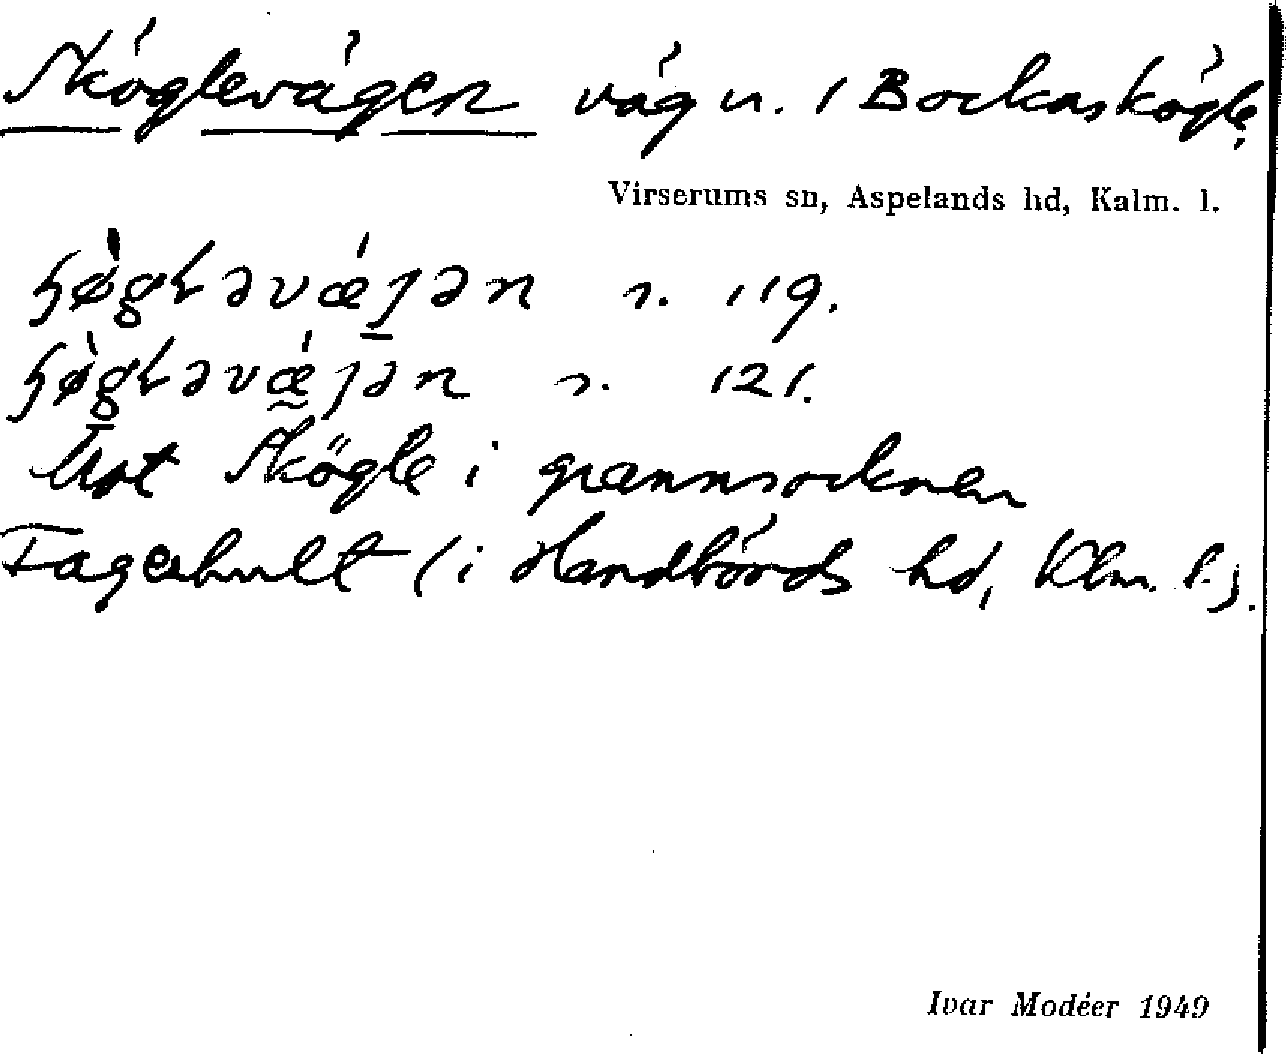 Sköglevägen väg n. i Bockaskögle,
Virserums sn, Aspelands hd, Kalm. l.
s. 119.
s. 121.
Mot Skögle i grannsocknen
Fagerhult (i Handbörds hd, Klm. l.).
Ivar Modéer 1949